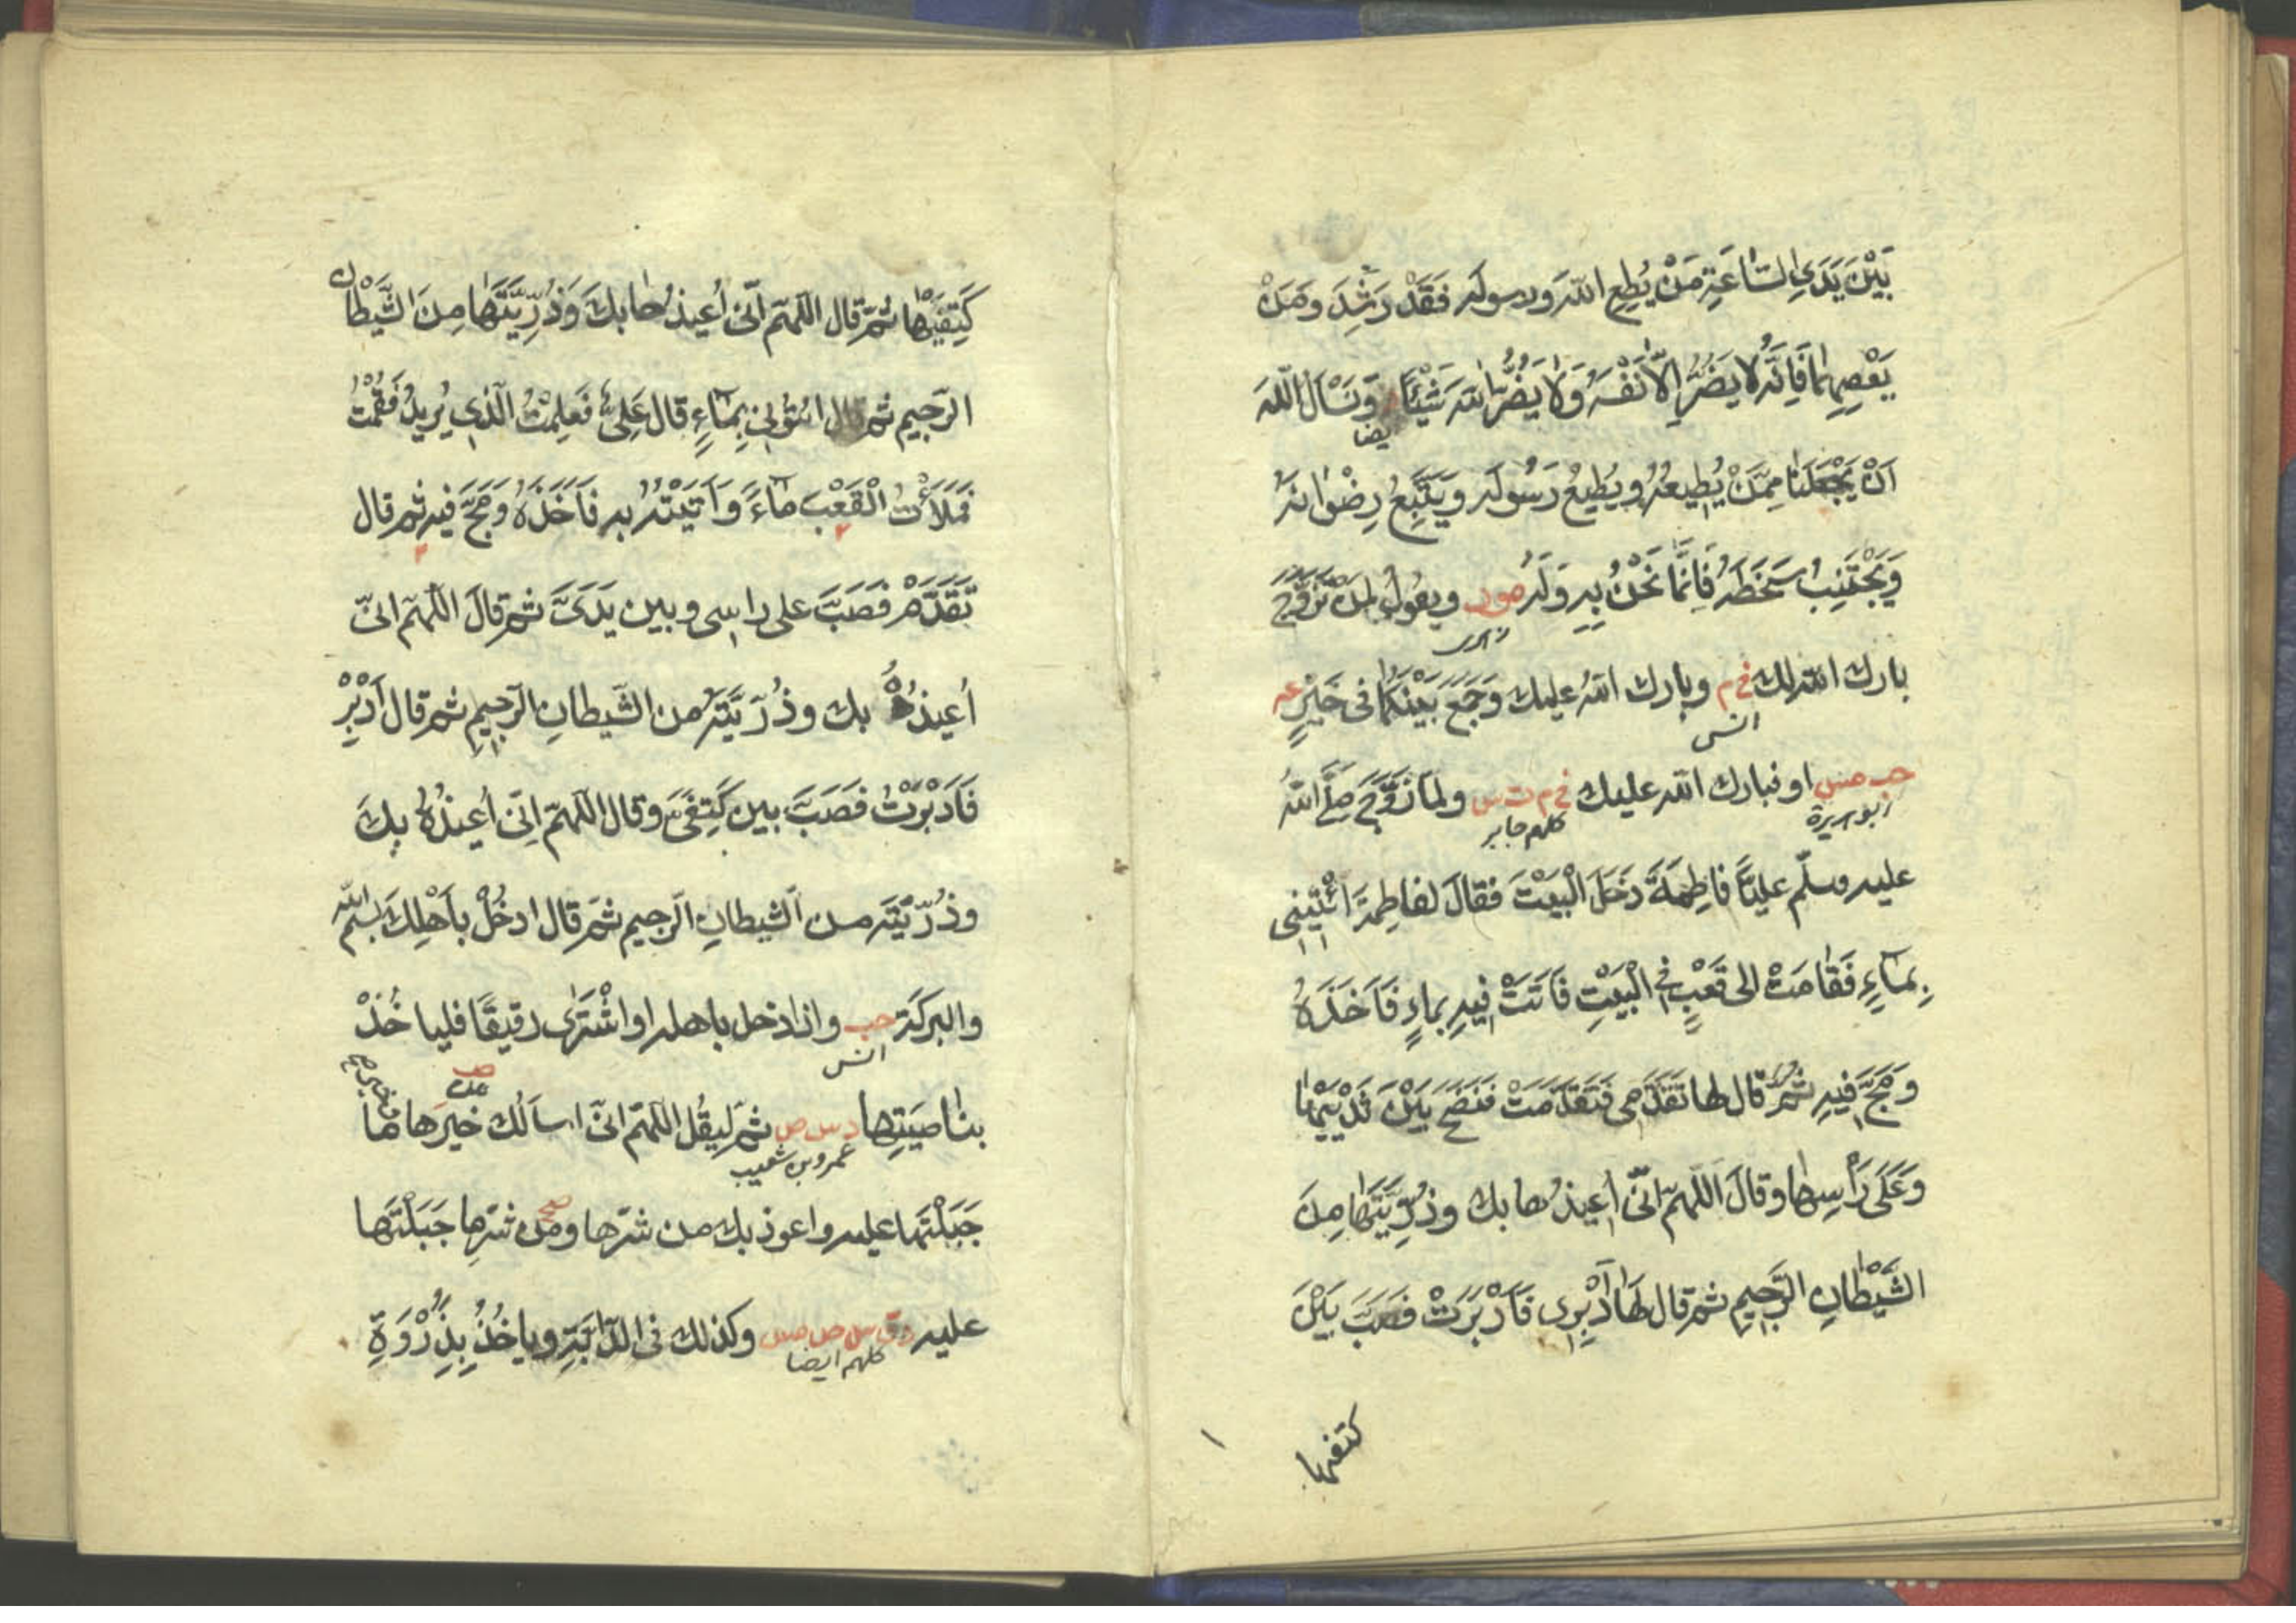 بَيْنَ يَدَيِ السَّاعَةِ مَنْ يُطِعِ اللّٰهَ وَرسولَه فَقَدْ رَشِدَ ومَنْ
يَعْصِهِمَا فَاِنَّهُ لا يَضُرُّ اِلَّا نَفْسَهُ وَلَا يَضُرُّ اللّٰهَ شَيْئًا وَنَسْاَلُ اللّٰهَ
ايضا
اَنْ يَجْعَلَنَا مِمَّنْ يُطِيعُهُ ويُطِيعُ رَسُولَه ويَتَّبِعُ رِضْوَانَهُ
وَيَجْتَنِبُ سَخَطَهُ فَاِنَّمَا نَحْنُ بِهِ وَلَهُ مو د ويقولُ لِمَنْ تَزَوَّجَ
بارك اللّٰه لك خ م وبارك اللّٰهُ عليك وَجَمَعَ بَيْنَكُمَا فى خَيْرٍ عه
انس
حب مس او فبارك اللّٰه عليك خ م ت س ولمّا زَوَّجَ صلّى اللّٰهُ
ابو هريرة كلهم جابر
عليه وسلّم عليًّا فاطِمَةَ دَخَلَ الْبَيْتَ فقالَ لفاطِمةَ ائْتِينِى
بِمَاءٍ فَقَامَتْ الى قَعْبٍ فى الْبَيْتِ فَاَتَتْ فِيهِ بماءٍ فَاَخَذَهُ
ومَجَّ فِيهِ ثُمَّ قال لها تَقَدَّمِى فَتَقَدَّمَتْ فَنَضَحَ بَيْنَ ثَدْيَيْهَا
وَعَلَى رَأْسِهَا وقالَ اَللّٰهمّ انّى اُعِيذُها بك وذُرِّيَّتَهَا مِنَ
الشَّيْطَانِ الرَّجِيمِ ثم قال لَهَا اَدْبِرِى فَاَدْبَرَتْ فَصَبَّ بَيْنَ
كتفيها
كَتِفَيْهَا ثُمَّ قال اللّٰهمّ انّى اُعيذُها بكَ وَذُرِّيَّتَهَا مِنَ الشَّيْطَانِ
الرَّجيم ثم قال ائتونى بِمَاءٍ قال عَلِىٌّ فَعَلِمْتُ الَّذِى يُرِيدُ فَقُمْتُ
فَمَلَأْتُ الْقَعْبَ مَاءً وَاَتَيْتُهُ بِه فَاَخَذَهُ وَمَجَّ فِيه ثم قال
تَقَدَّمْ فَصَبَّ على راسِى وبين يَدَىَّ ثم قالَ اللّٰهمّ انّى
اُعِيذُهُ بك وذُرِّيَّتَهُ من الشَّيطانِ الرَّجِيمِ ثم قال اَدْبِرْ
فَاَدْبَرْتُ فَصَبَّ بين كَتِفَىَّ وقال اللّٰهمّ اِنّى اُعيذُهُ بِكَ
وذُرِّيَّتَه من الشّيطانِ الرَّجيم ثمّ قال ادخُلْ بأَهْلِكَ بِسْمِ اللّٰه
والبركَةِ حب واذا دخل باهله او اشْتَرٰى رقيقًا فلياخُذْ
انس
بنَاصِيَتِهَا د س ص ثم ليقُل اللّٰهمّ انّى اساَلُك خيرَها وخير ما
عمرو بن شعيب
جَبَلْتَهَا عليه واعوذ بك من شرّها ومن شرِّ ما جَبَلْتَهَا
عليه د ق س ص مس وكذلك فى الدَّابَّةِ وياخُذُ بِذِرْوَةِ
كلهم ايضا